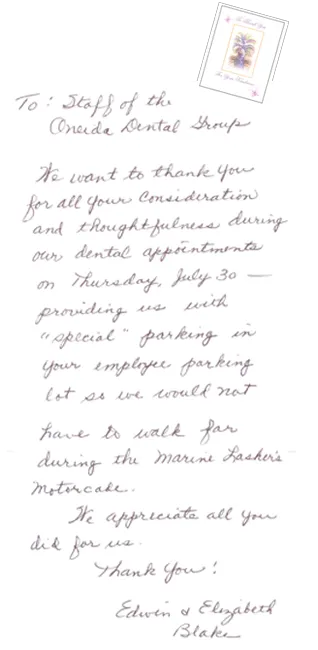 To Thank You
For Your Kindness
To: Staff of the
Oneida Dental Group
We want to thank you
for all your consideration
and thoughtfulness during
our dental appointments
on Thursday, July 30 —
providing us with
"special" parking in
your employee parking
lot so we would not
have to walk far
during the Marine Lasher's
Motorcade.
We appreciate all you
did for us.
Thank You!
Edwin & Elizabeth
Blake